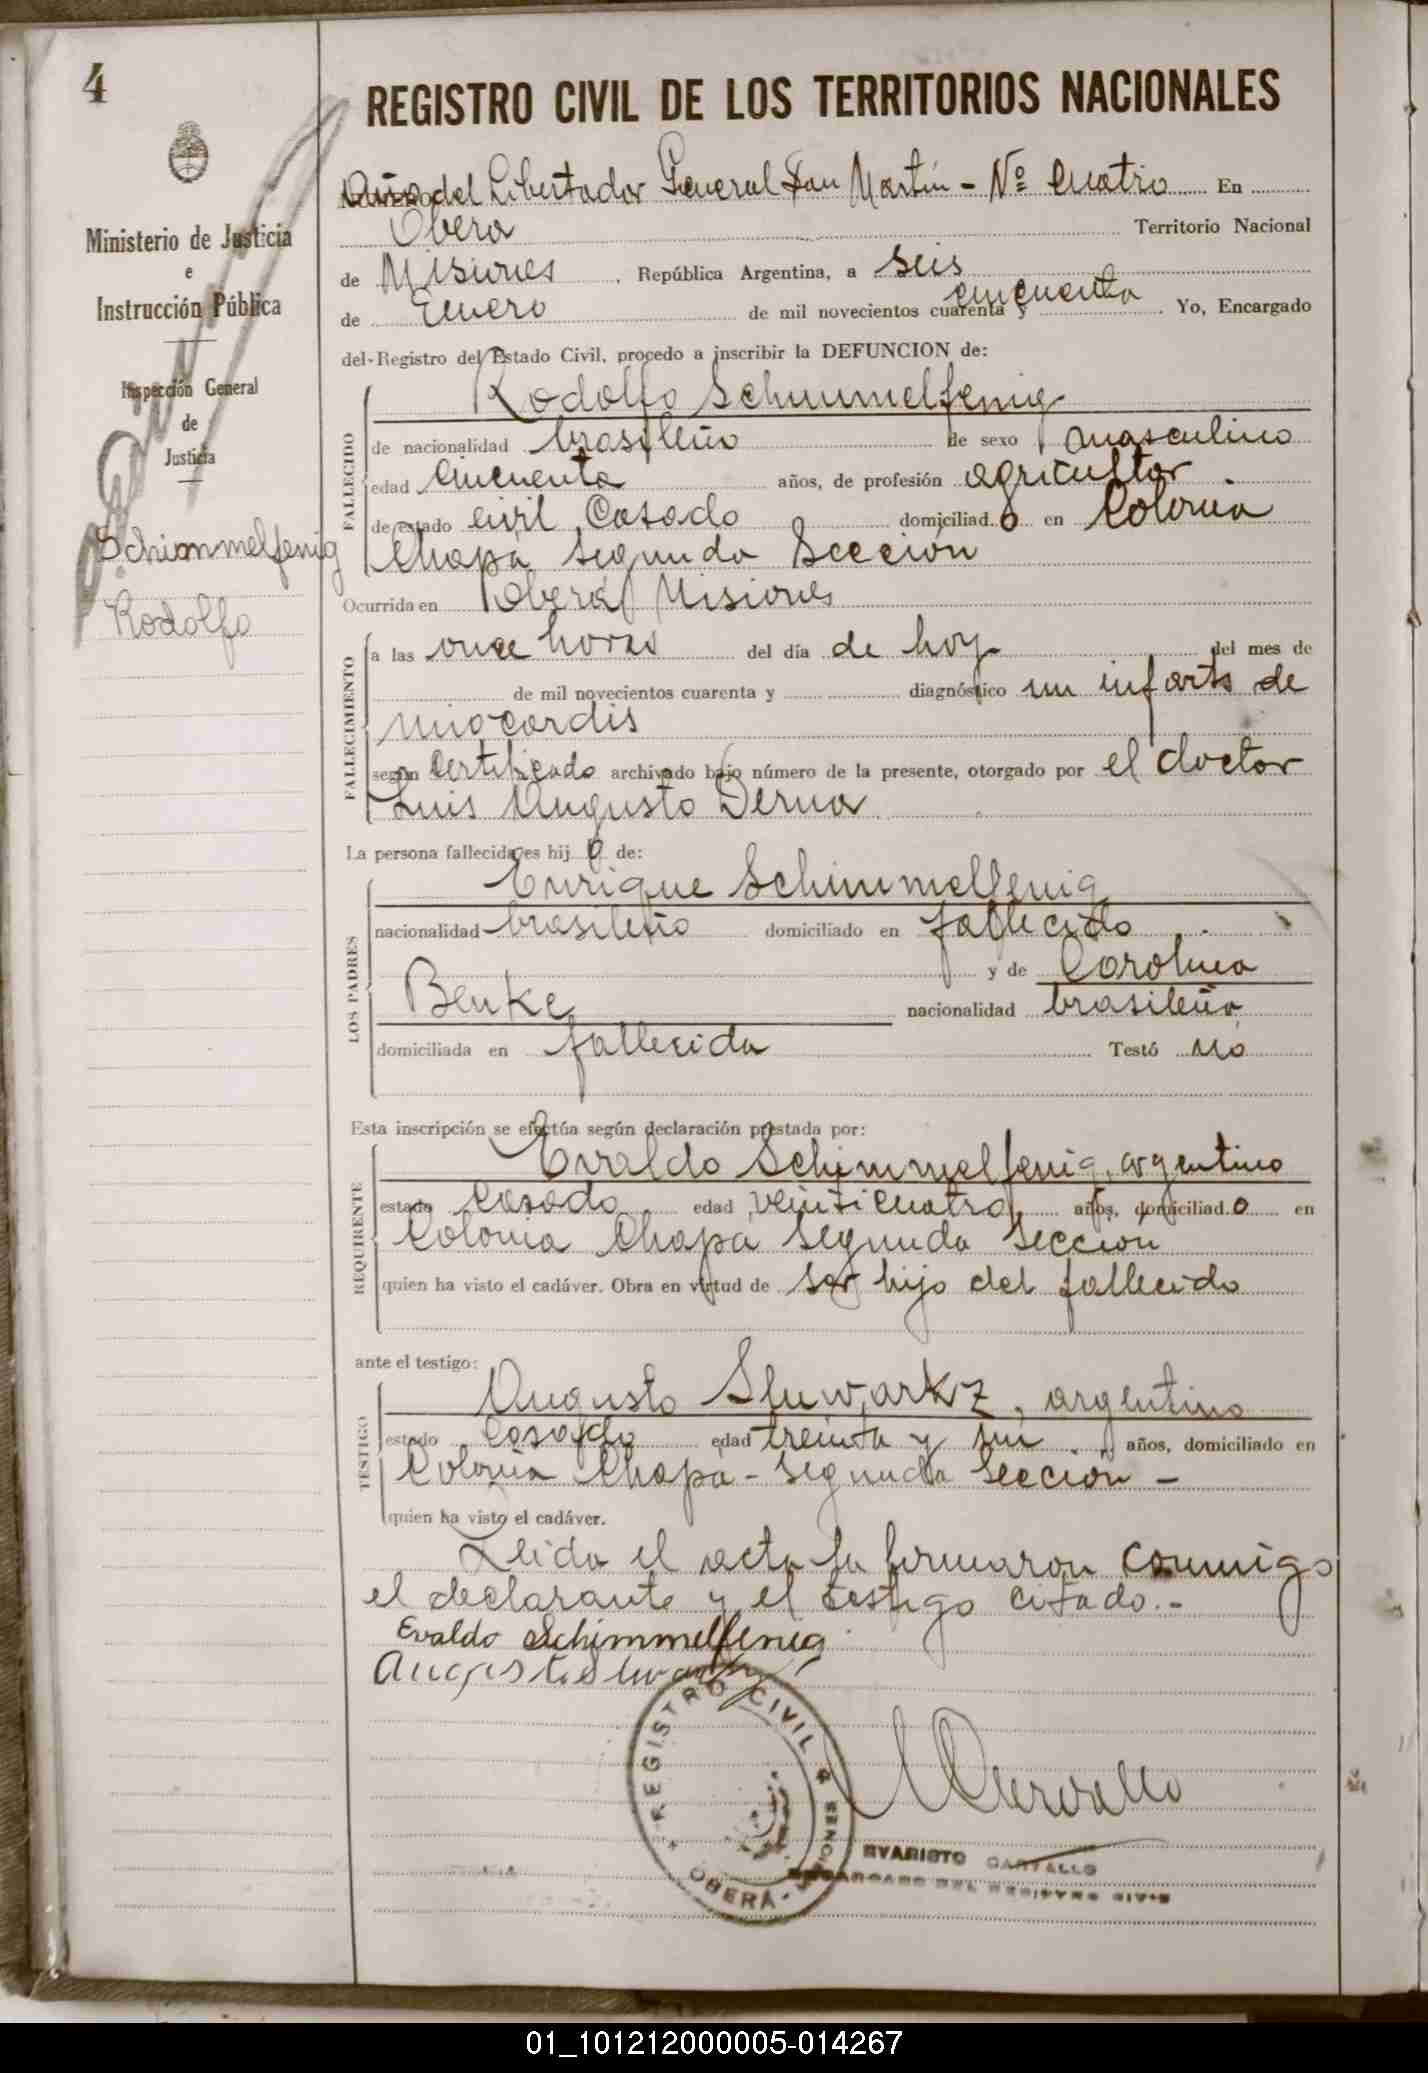 4
REGISTRO CIVIL DE LOS TERRITORIOS NACIONALES
Ministerio de Justicia
e
Instrucción Pública
Inspección General
de
Justicia
Schimmelfenig
Rodolfo
Año del Libertador General San Martín - Nº Cuatro En
Oberá Territorio Nacional
de Misiones, República Argentina, a seis
de Enero de mil novecientos cuarenta y cincuenta. Yo, Encargado
del Registro del Estado Civil, procedo a inscribir la DEFUNCION de:
FALLECIDO
Rodolfo Schimmelfenig
de nacionalidad brasileño de sexo masculino
edad cincuenta años, de profesión agricultor
de estado civil Casado domiciliado en Colonia
Chapá Segunda Sección
Ocurrida en Oberá Misiones
FALLECIMIENTO
a las once horas del día de hoy del mes de
de mil novecientos cuarenta y diagnóstico un infarto de
miocardis
según certificado archivado bajo número de la presente, otorgado por el doctor
Luis Augusto Derna
La persona fallecida es hijo de:
LOS PADRES
Enrique Schimmelfenig
nacionalidad brasileño domiciliado en fallecido
y de Carolina
Benke nacionalidad brasileña
domiciliada en fallecida Testó no
Esta inscripción se efectúa según declaración prestada por:
REQUIRENTE
Evaldo Schimmelfenig, argentino
estado Casado edad veinticuatro años, domiciliado en
Colonia Chapá Segunda Sección
quien ha visto el cadáver. Obra en virtud de ser hijo del fallecido
ante el testigo:
TESTIGO
Augusto Sluwarkz, argentino
estado Casado edad treinta y un años, domiciliado en
Colonia Chapá - Segunda Sección -
quien ha visto el cadáver.
Leida el acta la firmaron conmigo
el declarante y el testigo citado.-
Evaldo Schimmelfenig
REGISTRO CIVIL
OBERÁ - MISIONES
EVARISTO CARVALLO
ENCARGADO DEL REGISTRO CIVIL
01_101212000005-014267